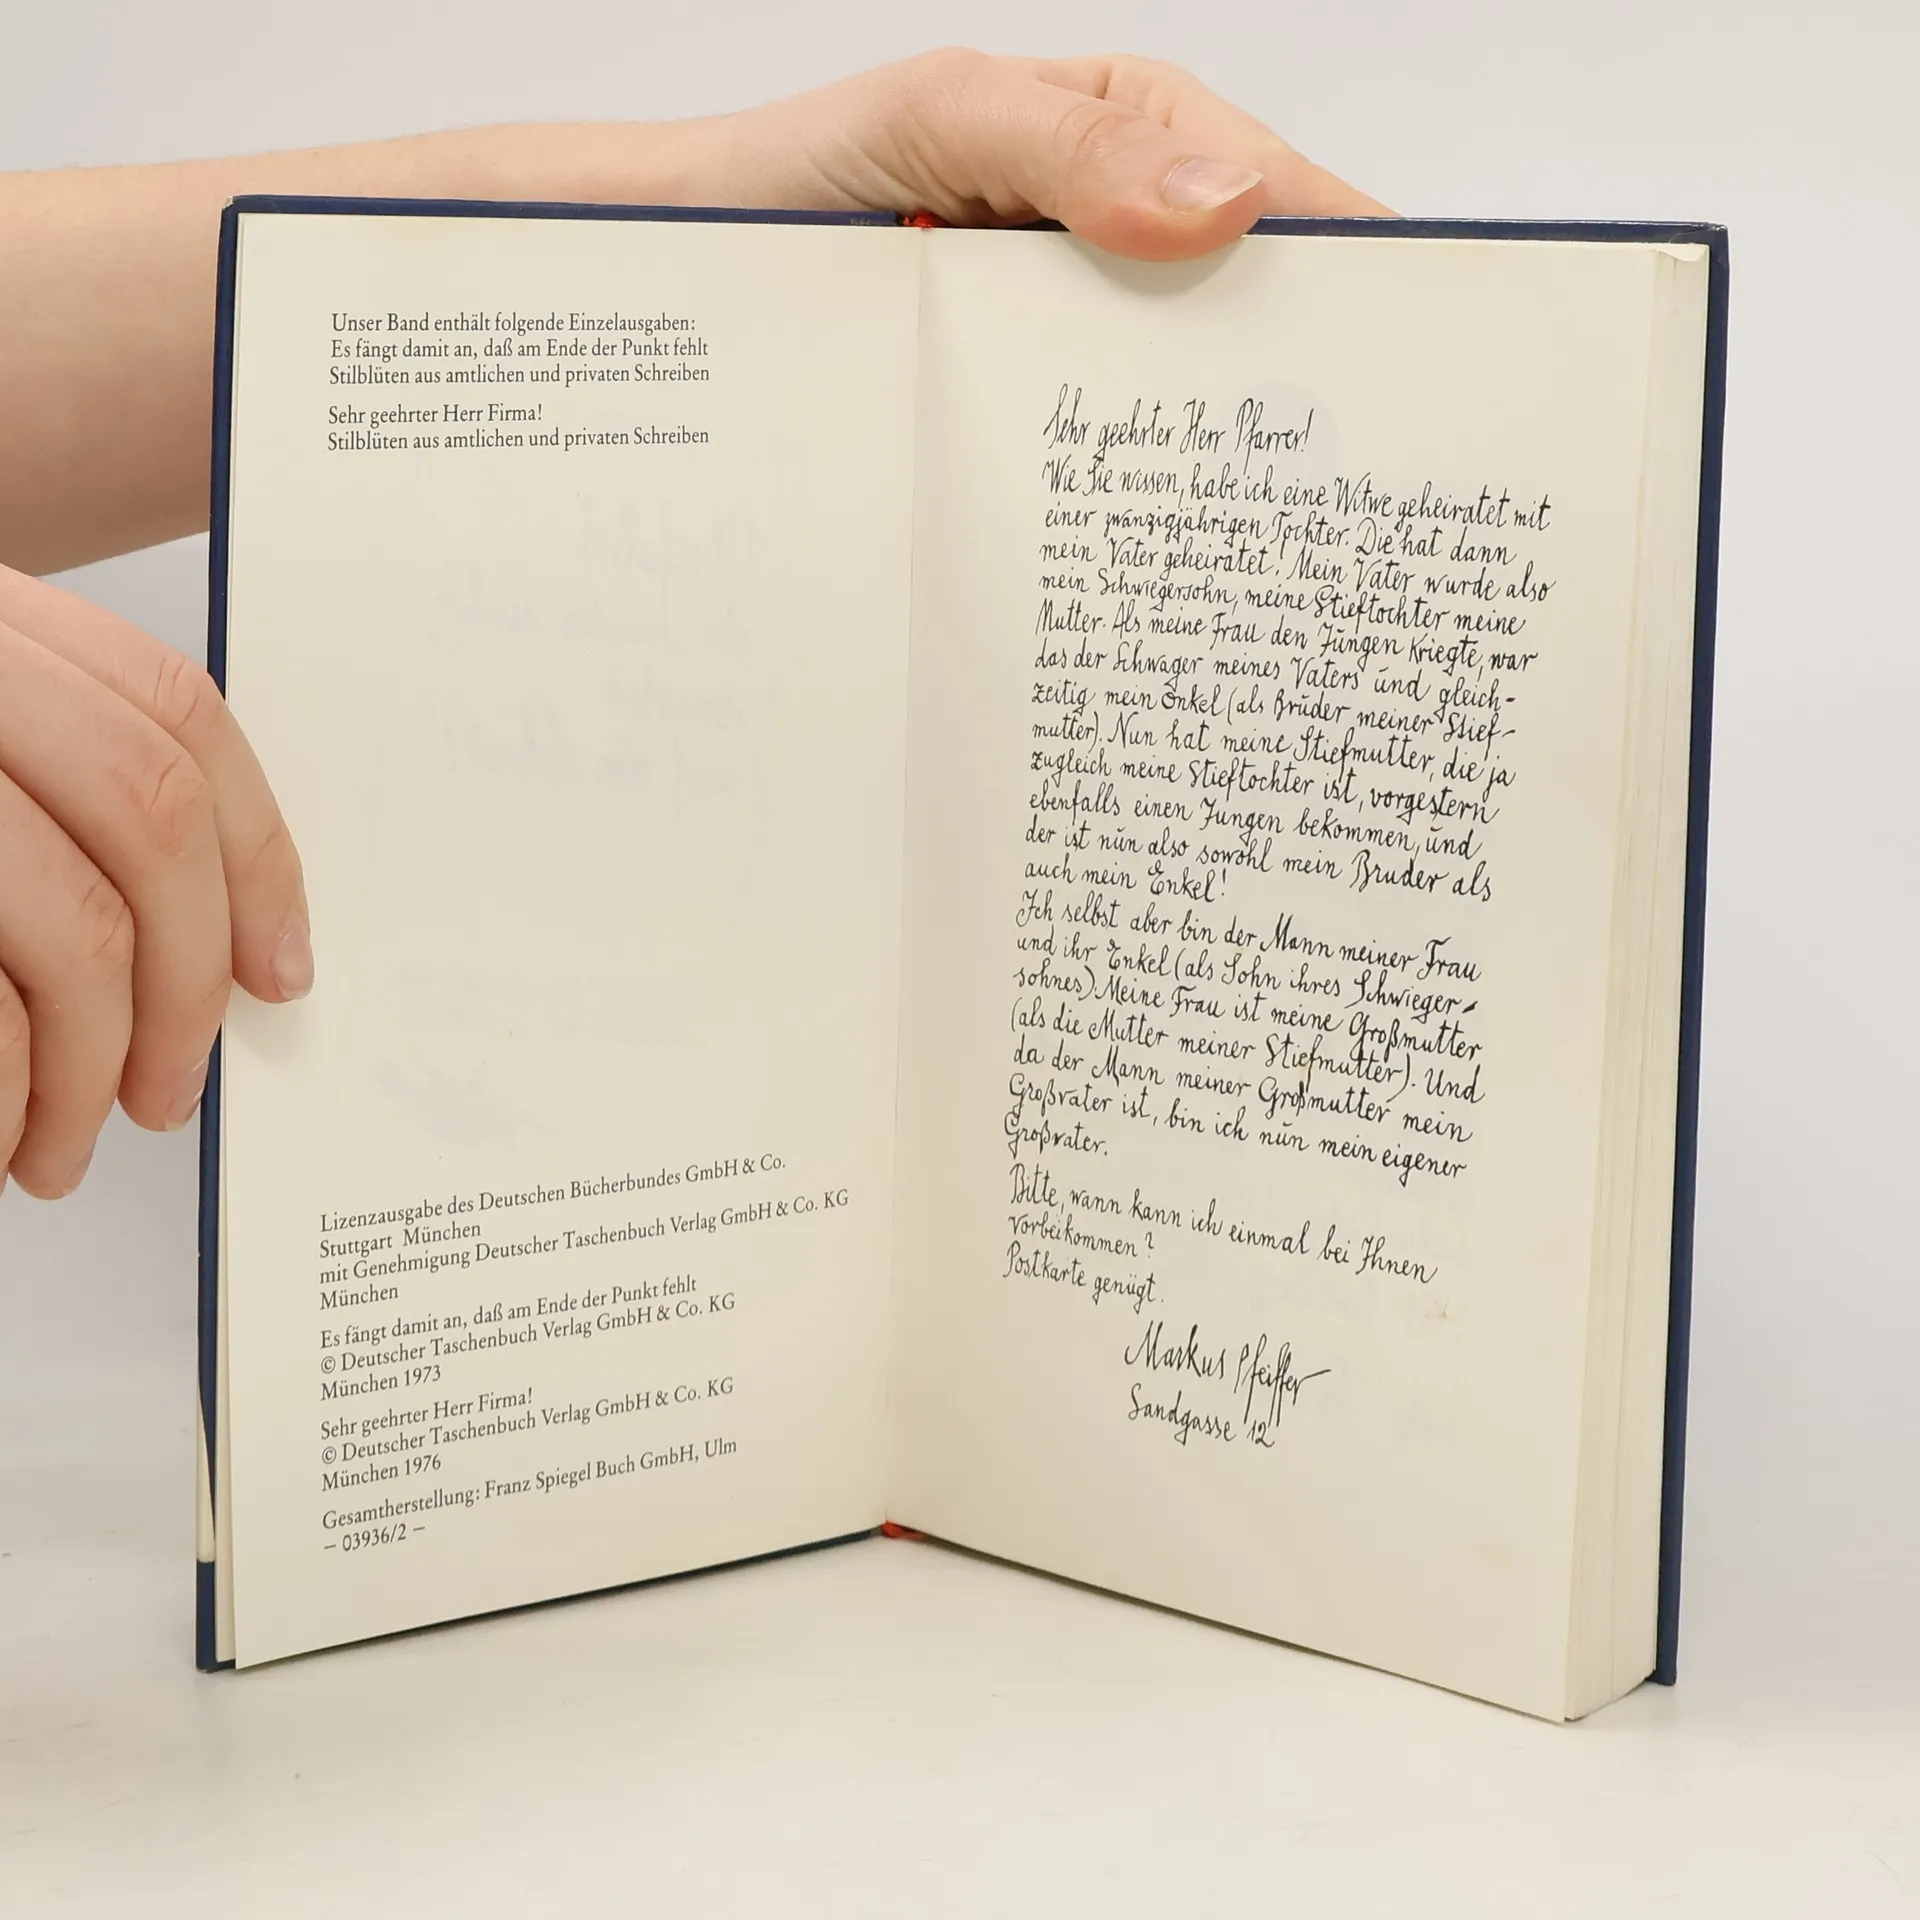 Unser Band enthält folgende Einzelausgaben:
Es fängt damit an, daß am Ende der Punkt fehlt
Stilblüten aus amtlichen und privaten Schreiben
Sehr geehrter Herr Firma!
Stilblüten aus amtlichen und privaten Schreiben
Lizenzausgabe des Deutschen Bücherbundes GmbH & Co.
Stuttgart München
mit Genehmigung Deutscher Taschenbuch Verlag GmbH & Co. KG
München
Es fängt damit an, daß am Ende der Punkt fehlt
© Deutscher Taschenbuch Verlag GmbH & Co. KG
München 1973
Sehr geehrter Herr Firma!
© Deutscher Taschenbuch Verlag GmbH & Co. KG
München 1976
Gesamtherstellung: Franz Spiegel Buch GmbH, Ulm
– 03936/2 –
Sehr geehrter Herr Pfarrer!
Wie Sie wissen, habe ich eine Witwe geheiratet mit
einer zwanzigjährigen Tochter. Die hat dann
mein Vater geheiratet! Mein Vater wurde also
mein Schwiegersohn, meine Stieftochter meine
Mutter. Als meine Frau den Jungen kriegte, war
das der Schwager meines Vaters und gleich-
zeitig mein Onkel (als Bruder meiner Stief-
mutter). Nun hat meine Stiefmutter, die ja
zugleich meine Stieftochter ist, vorgestern
ebenfalls einen Jungen bekommen, und
der ist nun also sowohl mein Bruder als
auch mein Enkel!
Ich selbst aber bin der Mann meiner Frau
und ihr Enkel (als Sohn ihres Schwieger-
sohnes). Meine Frau ist meine Großmutter
(als die Mutter meiner Stiefmutter). Und
da der Mann meiner Großmutter mein
Großvater ist, bin ich nun mein eigener
Großvater.
Bitte, wann kann ich einmal bei Ihnen
vorbeikommen?
Postkarte genügt.
Markus Pfeiffer
Sandgasse 12